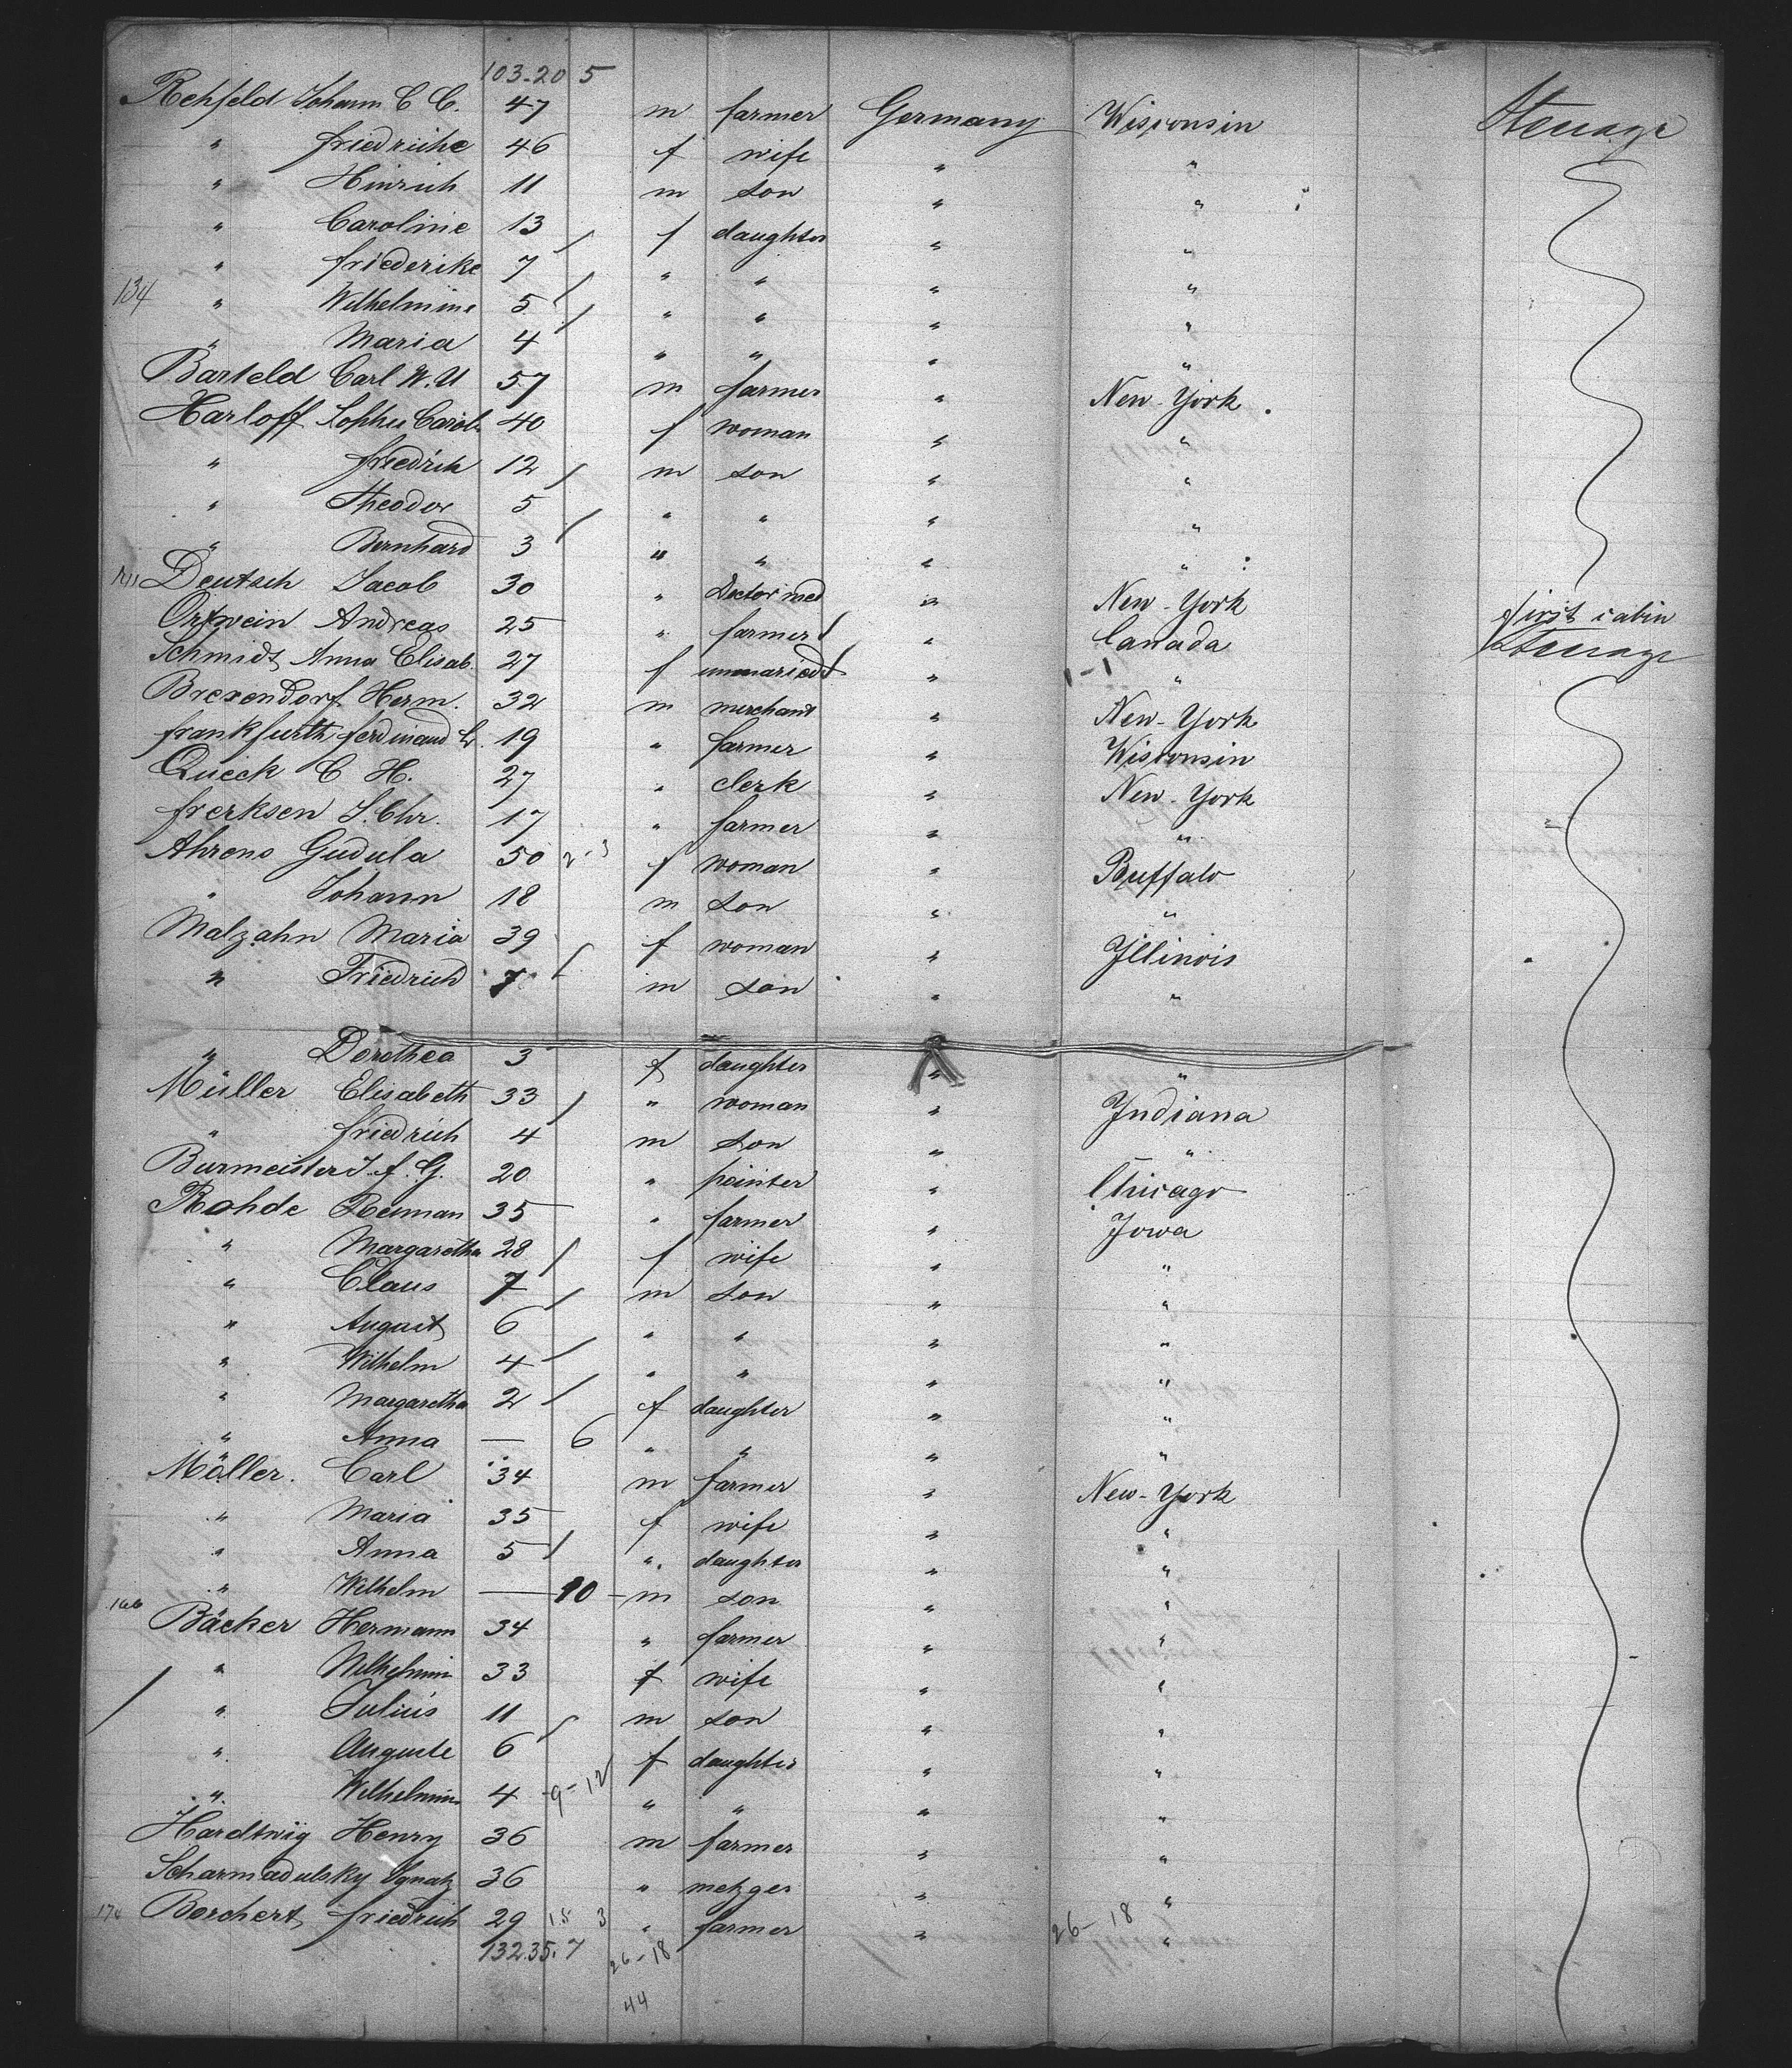 103-20 5
Rehfeld Johann C C. 47 m farmer Germany Wisconsin Steerage
" Friedriche 46 f wife " "
" Hinrich 11 m son " "
" Caroline 13 f daughter " "
" Friederike 7 / " " " "
134 " Wilhelmine 5 / " " " "
" Maria 4 / " " " "
Barteld Carl W. U 57 m farmer " New-York
Harloff Sophie Carol. 40 f woman " "
" Friedrich 12 m son " "
" Theodor 5 / " " " "
" Bernhard 3 / " " " "
Deutsch Jacob 30 " Doctor med " New-York first cabin
Ortwein Andreas 25 " farmer " Canada Steerage
Schmidt Anna Elisab. 27 f unmaried 1-1 " "
Brexendorf Herm. 32 m merchant " New-York
Frankfurth Ferdinand 19 " farmer " Wisconsin
Queck C H. 27 " clerk " New-York
Frerksen J. Chr. 17 " farmer " "
Ahrens Gudula 50 f woman " Buffalo
" Johann 18 m son " "
Malzahn Maria 39 f woman " Illinois
" Friedrich 7 / m son " "
" Dorothea 3 f daughter " "
Müller Elisabeth 33 " woman " Indiana
" Friedrich 4 / m son " "
Burmeister J. F. G. 20 " painter " Chicago
Rohde Reiman 35 " farmer " Iowa
" Margaretha 28 f wife " "
" Claus 7 / m son " "
" August 6 / " " " "
" Wilhelm 4 / " " " "
" Margaretha 2 / f daughter " "
" Anna — 6 " " " "
Möller. Carl 34 m farmer " New-York
" Maria 35 f wife " "
" Anna 5 / " daughter " "
" Wilhelm — 10 - m son " "
166 Bäcker Hermann 34 " farmer " "
" Wilhelmin 33 f wife " "
" Julius 11 m son " "
" Auguste 6 / f daughter " "
" Wilhelmin 4 -9-12 " " " "
Hardtwig Henry 36 m farmer " "
Scharmadulsky Ignatz 36 " metzger " "
Borchert Friedrich 29 15 3 " farmer " 26-18 "
132.35.7 26-18
44